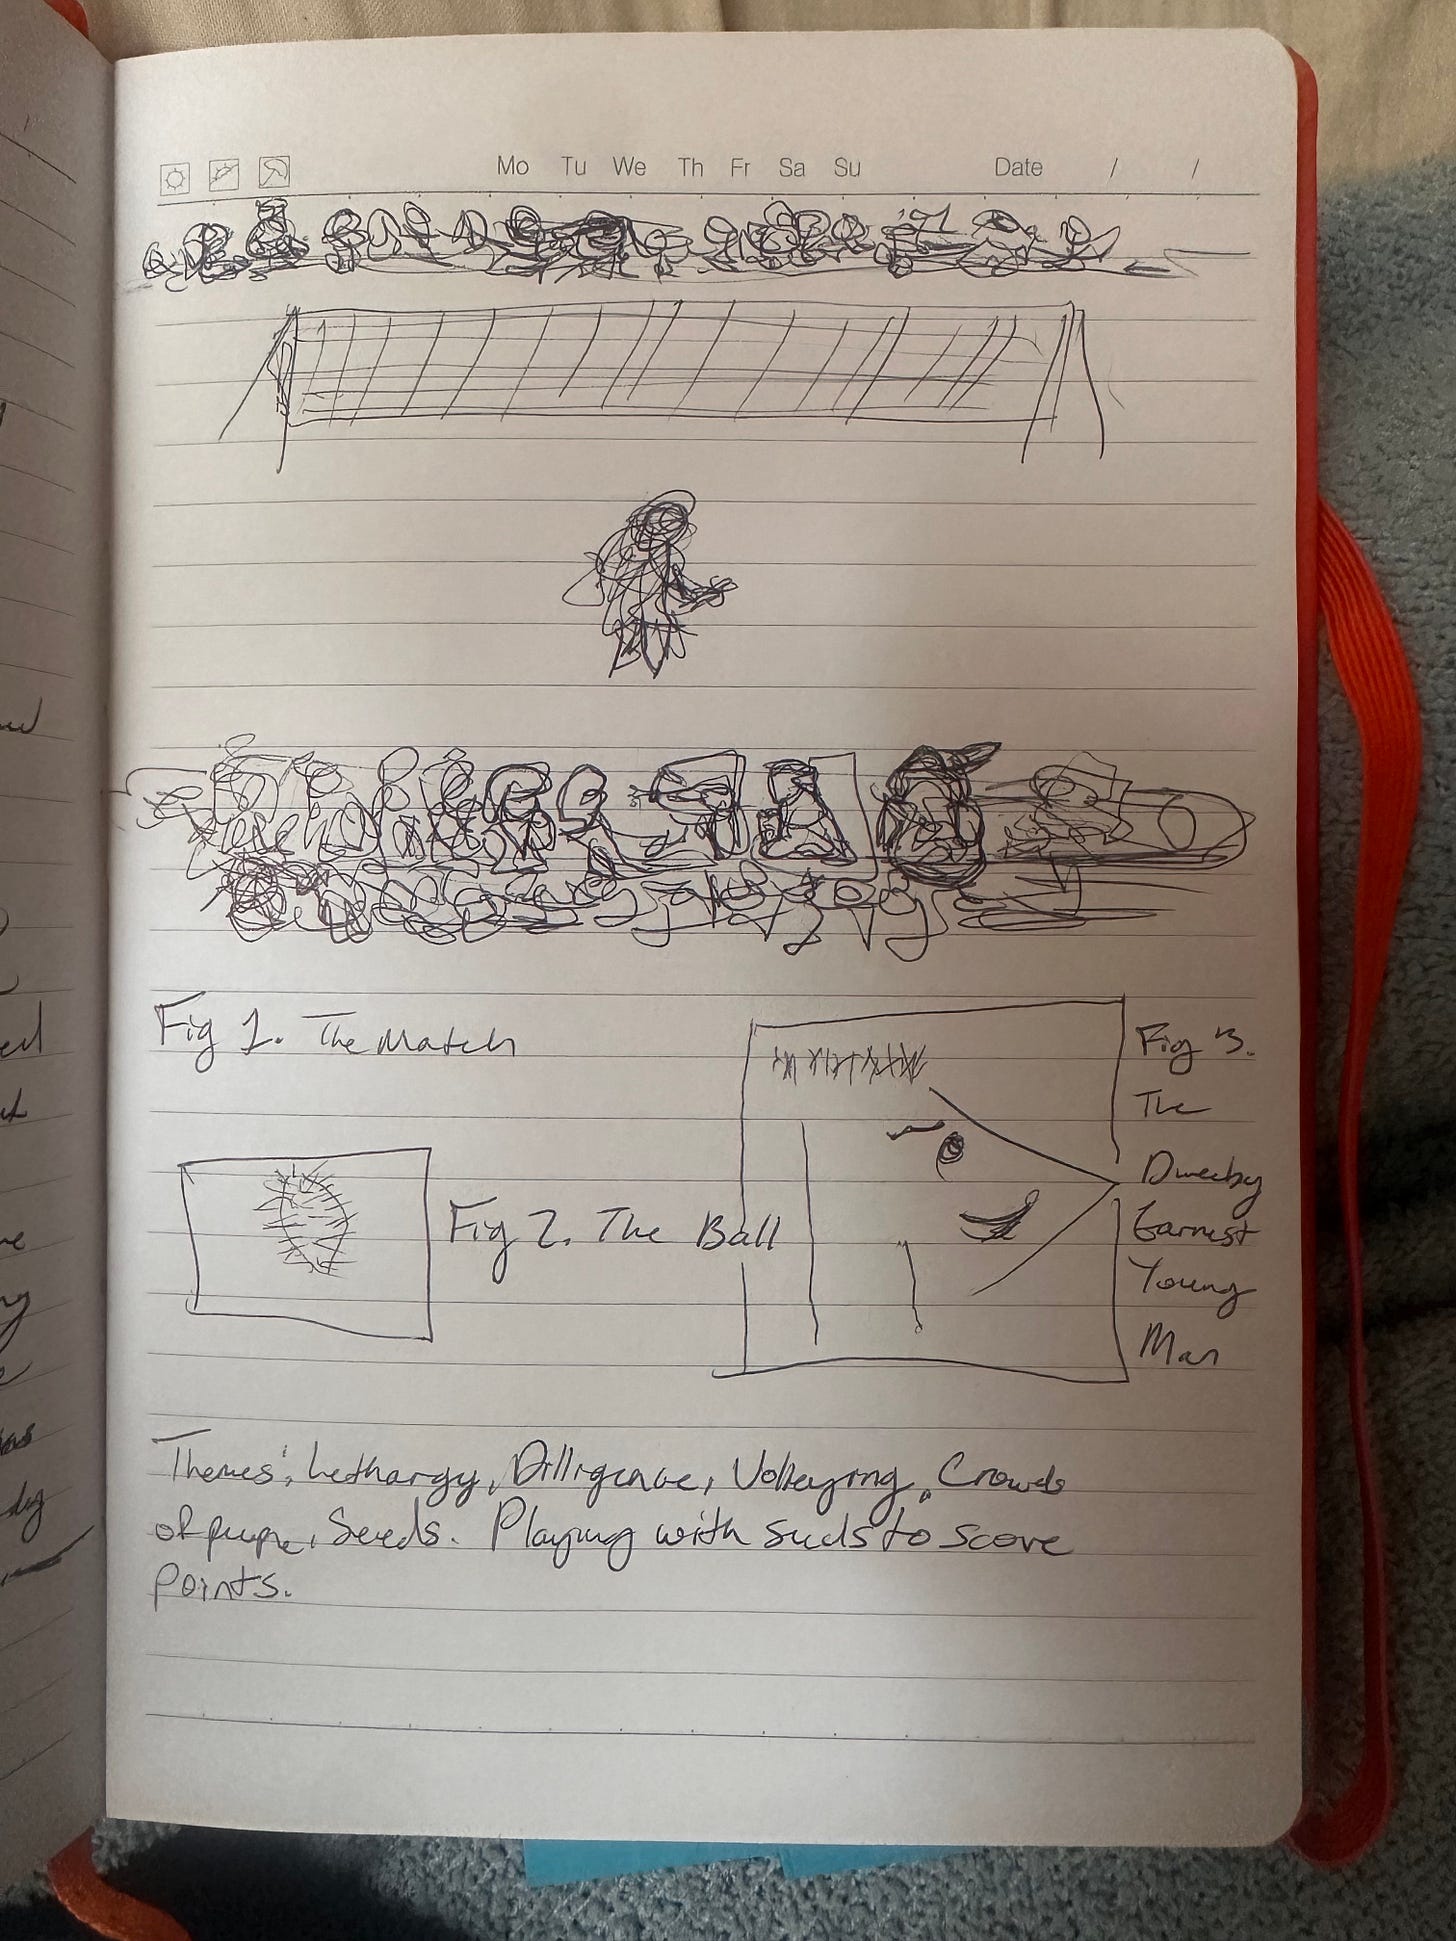 Mo Tu We Th Fr Sa Su Date / /
Fig 1. The Match
Fig 2. The Ball
Fig 3.
The
Dweeby
Earnest
Young
Man
Themes: Lethargy, Dilligence, Volleying, Crowds
of people, Seeds. Playing with seeds to score
points.